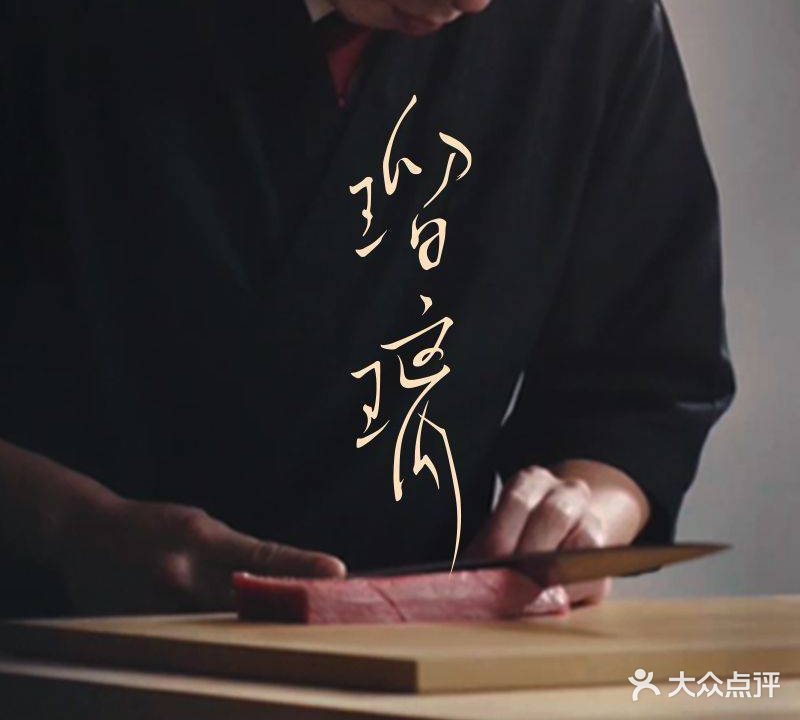 瑠璃
大众点评